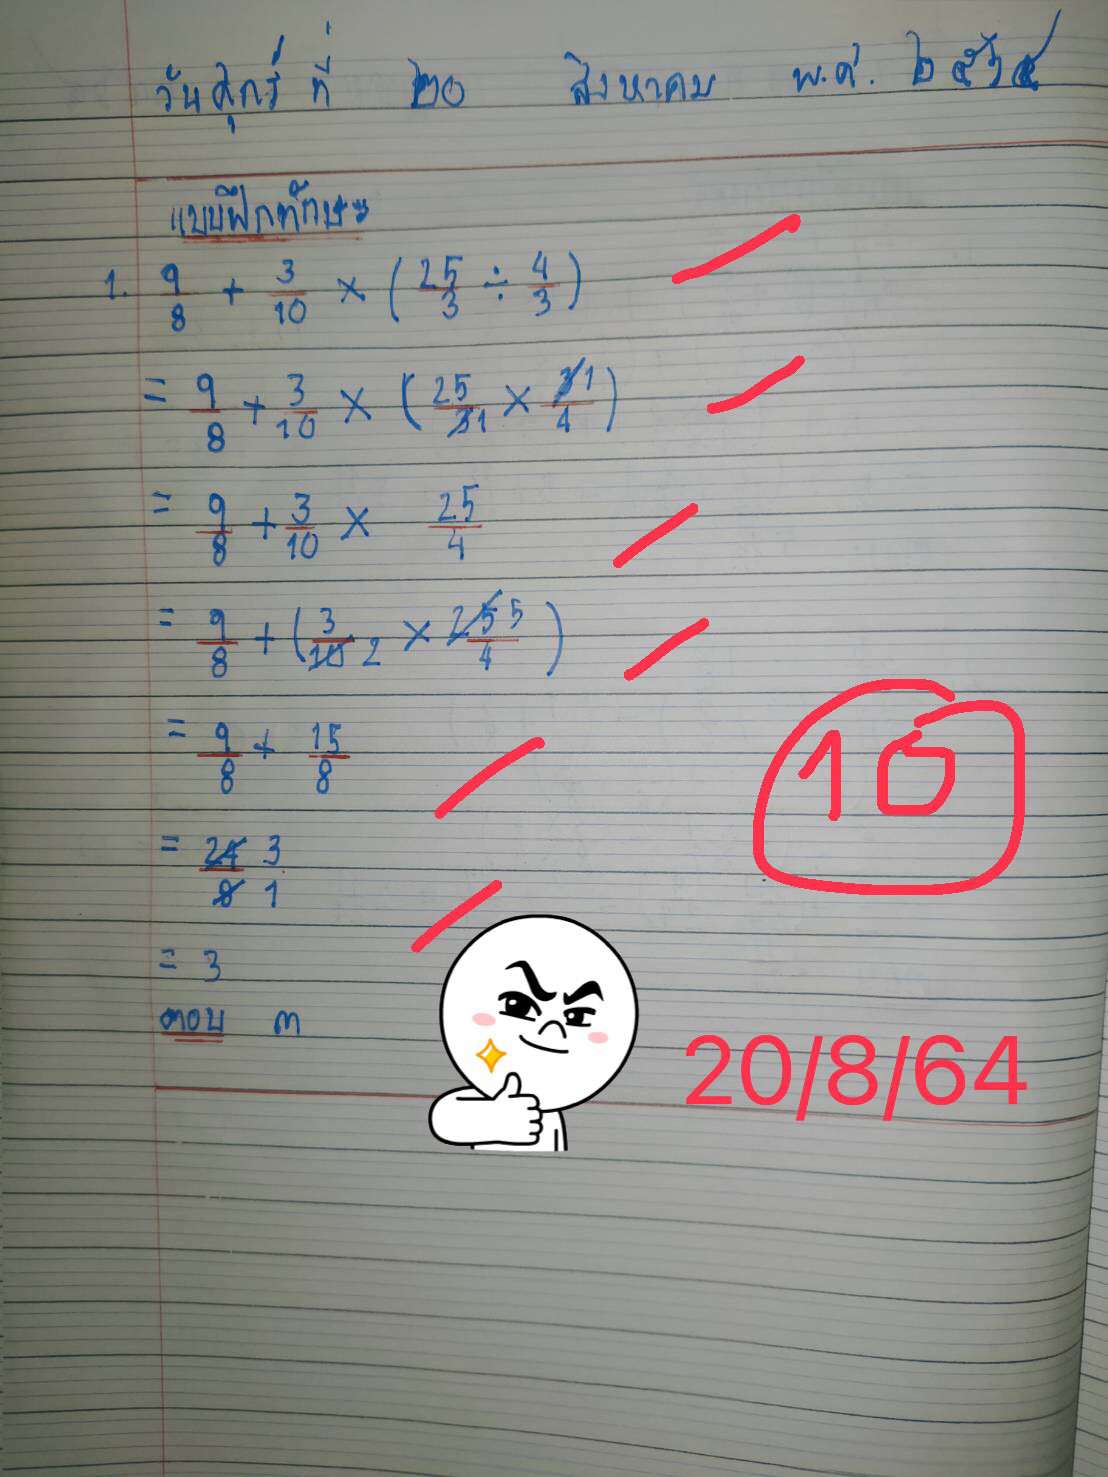 วันศุกร์ ที่ ๒๐ สิงหาคม พ.ศ. ๒๕๖๔
แบบฝึกทักษะ
1. 9/8 + 3/10 × (25/3 ÷ 4/3)
= 9/8 + 3/10 × (25/3 1 × 3 1/4)
= 9/8 + 3/10 × 25/4
= 9/8 + (3/10 2 × 25 5/4)
= 9/8 + 15/8
10
= 24/8 3/1
= 3
ตอบ ๓
20/8/64